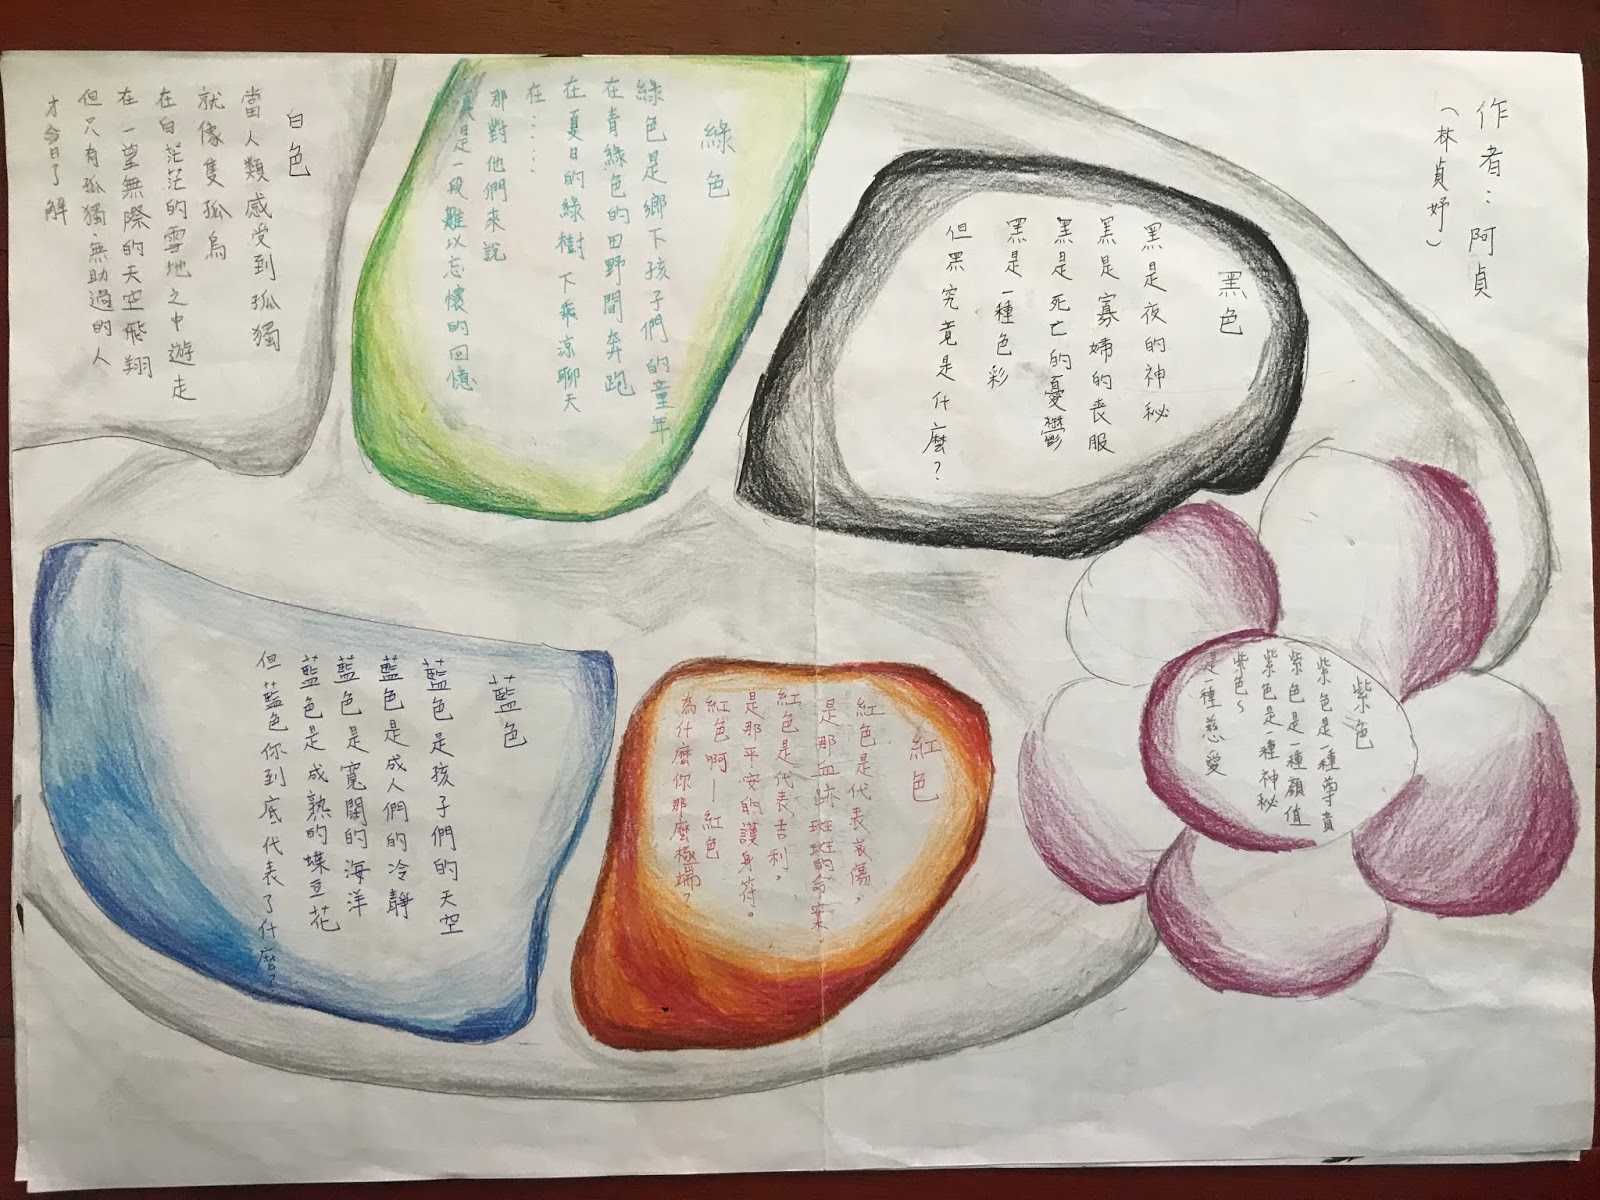 作者：阿貞
（林貞妤）
黑色
黑是夜的神秘
黑是寡婦的喪服
黑是死亡的憂鬱
黑是一種色彩
但黑究竟是什麼？
綠色
綠色是鄉下孩子們的童年
在青綠色的田野間奔跑
在夏日的綠樹下乘涼聊天
在……
那對他們來說
真是一段難以忘懷的回憶
白色
當人類感受到孤獨
就像隻孤鳥
在白茫茫的雪地之中遊走
在一望無際的天空飛翔
但只有孤獨無助過的人
才會了解
紫色
紫色是一種尊貴
紫色是一種顏值
紫色是一種神秘
紫色~
是一種慈愛
紅色
紅色是代表哀傷，
是那血跡斑斑的命案
紅色是代表吉利，
是那平安的護身符。
紅色啊—紅色
為什麼你那麼極端？
藍色
藍色是孩子們的天空
藍色是成人們的冷靜
藍色是寬闊的海洋
藍色是成熟的蝶豆花
但藍色你到底代表了什麼？